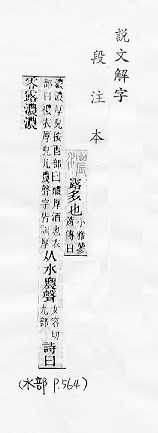 說文解字
段注本
濃 露多也小雅蓼蕭傳曰
濃濃厚皃後酉部曰醲厚酒也衣
部曰襛衣厚皃凡農聲字皆訓厚
从水農聲女容切九部詩曰
零露濃濃
(水部 P.564)